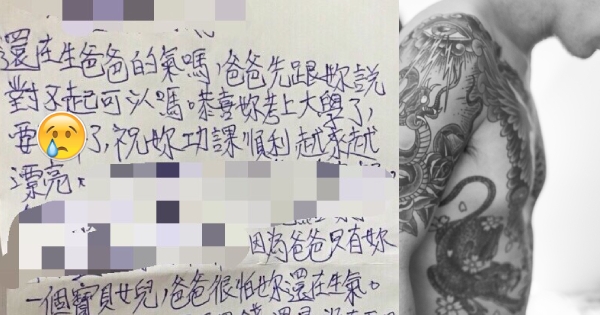 還在生爸爸的氣嗎,爸爸先跟妳說
對不起可以嗎。恭喜妳考上大學了,
要了,祝妳功課順利越來越
漂亮。
因為爸爸只有妳
一個寶貝女兒,爸爸很怕妳還在生氣。